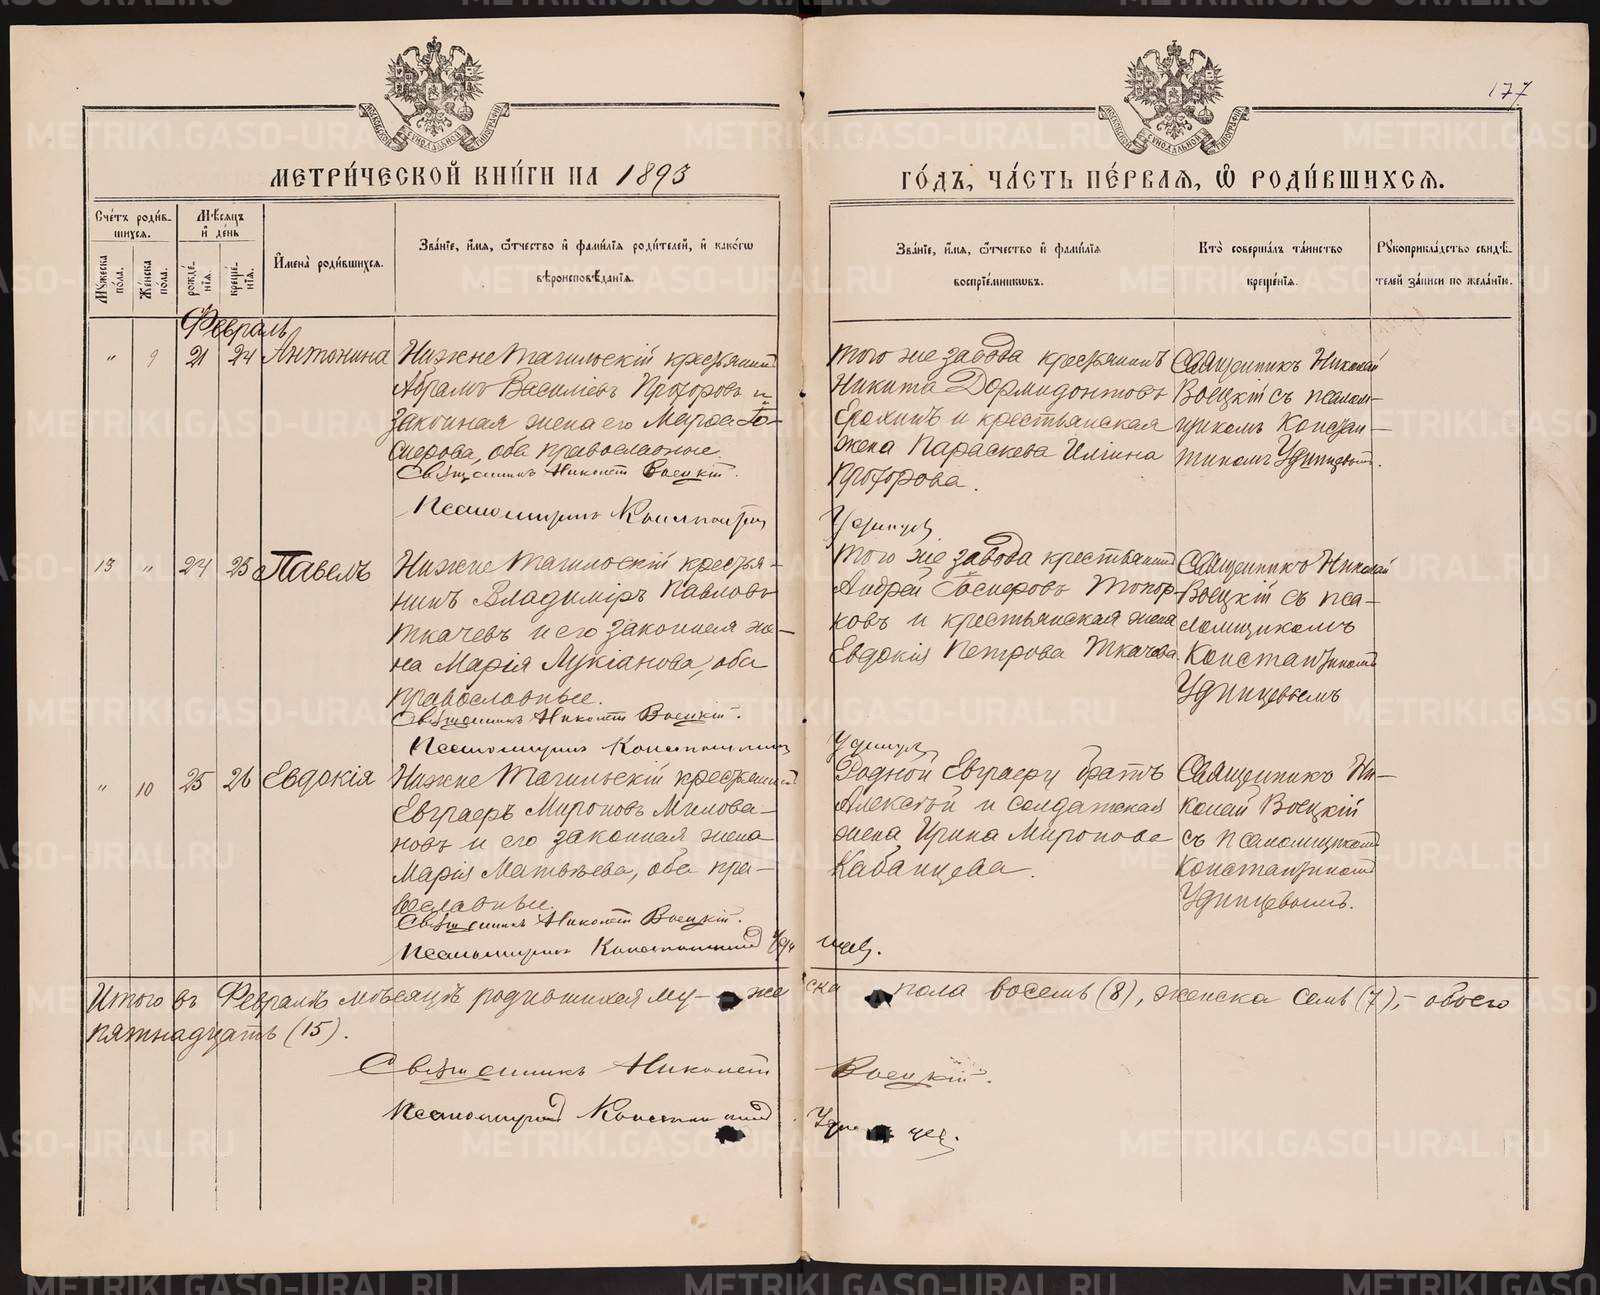 177
МЕТРИ́ЧЕСКОЙ КНИ́ГИ НА 1893
ГО́ДЪ, ЧА́СТЬ ПЕ́РВАЯ, Ѽ РОДИ́ВШИХСЯ.
Сче́тъ роди́в-
шихся.
Мѣ́сяцъ
и҆ де́нь
Му́жеска
по́ла.
Же́нска
по́ла.
рожде́-
нїя.
креще-
нїя.
И҆мена̀ роди́вшихся.
Зва́нїе, и҆́мя, ѻ҆́тчество и҆ фами́лїя роди́телей, и҆ како́гѡ
вѣроисповѣ́данїя.
Зва́нїе, и҆́мя, ѻ҆́тчество и҆ фами́лїя
воспрїе́мникѡвъ.
Кто̀ соверша́лъ та́инство
креще́нїя.
Рꙋкоприкла́дство свидѣ́-
телей за́писи по жела́нїю.
Февраль
" 9 21 24 Антонина
Нижне Тагильскій крестьянинъ
Абрамъ Василіевъ Прохоровъ и
законная жена его Марѳа Го-
смерова, оба православные.
Священникъ Николай Воецкій.
Псаломщикъ Константин
Того же завода крестьянинъ
Никита Дормидонтовъ
Ерохинъ и крестьянская
жена Параскева Ильина
Прохорова.
Удинцев
Священникъ Николай
Воецкій съ псалом-
щикомъ Констан-
тиномъ Удинцевымъ.
13 " 24 25 Павелъ
Нижне Тагильскій крестья-
нинъ Владиміръ Павловъ
Ткачевъ и его законная же-
на Марія Лукіанова, оба
православные.
Священникъ Николай Воецкій.
Псаломщикъ Константинъ
Того же завода крестьянинъ
Андрей Госмеровъ Топор-
ковъ и крестьянская жена
Евдокія Петрова Ткачева.
Удинцев
Священникъ Николай
Воецкій съ пса-
ломщикомъ
Константиномъ
Удинцевымъ
" 10 25 26 Евдокія
Нижне Тагильскій крестьянинъ
Евграфъ Мироновъ Милова-
новъ и его законная жена
Марія Матвѣева, оба пра-
вославные.
Священникъ Николай Воецкій.
Псаломщикъ Константинъ Удинцев.
Родной Евграфу братъ
Алексѣй и солдатская
жена Ирина Миронова
Кабанцева.
Священникъ Ни-
колай Воецкій
съ псаломщикомъ
Константиномъ
Удинцевымъ.
Итого въ Февралѣ мѣсяцѣ родившихся му-жеска пола восемь (8), женска семь (7), - обоего
пятнадцать (15).
Священникъ Николай Воецкій.
Псаломщикъ Константинъ Удинцев.